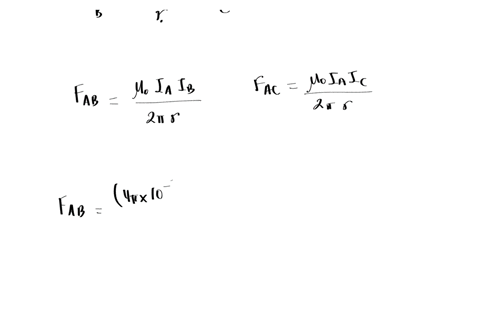 B r.
F_AB = μ₀ I_A I_B / 2π r F_AC = μ₀ I_A I_C / 2π r
F_AB = (4π × 10⁻